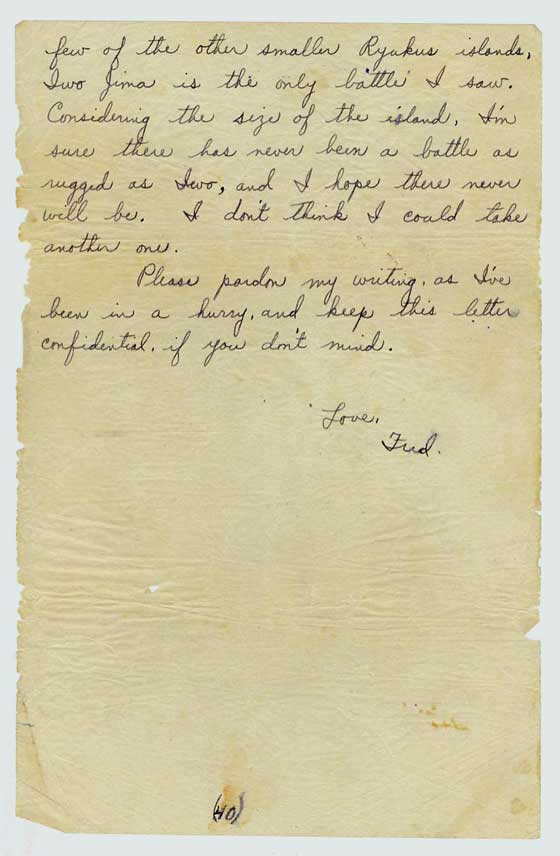 few of the other smaller Ryukus islands,
Iwo Jima is the only battle I saw.
Considering the size of the island, I'm
sure there has never been a battle as
rugged as Iwo, and I hope there never
will be. I don't think I could take
another one.
Please pardon my writing, as I've
been in a hurry, and keep this letter
confidential, if you don't mind.
Love,
Fred.
(40)